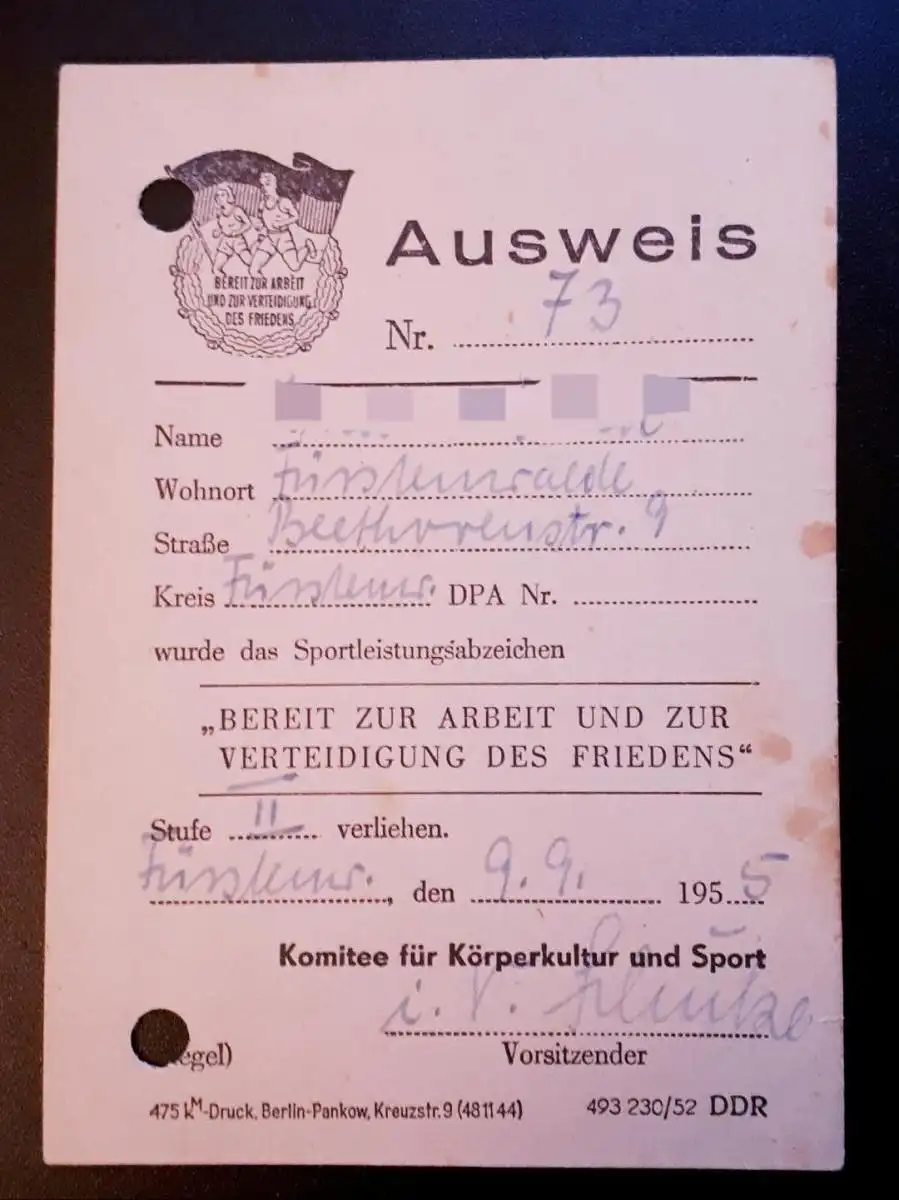 BEREIT ZUR ARBEIT
UND ZUR VERTEIDIGUNG
DES FRIEDENS
Ausweis
Nr. 73
Name
Wohnort Fürstenwalde
Straße Beethovenstr. 9
Kreis Fürstenw. DPA Nr.
wurde das Sportleistungsabzeichen
„BEREIT ZUR ARBEIT UND ZUR
VERTEIDIGUNG DES FRIEDENS“
Stufe II verliehen.
Fürstenw., den 9.9. 1955
Komitee für Körperkultur und Sport
i.V.
egel) Vorsitzender
475 KM-Druck, Berlin-Pankow, Kreuzstr. 9 (481144) 493 230/52 DDR